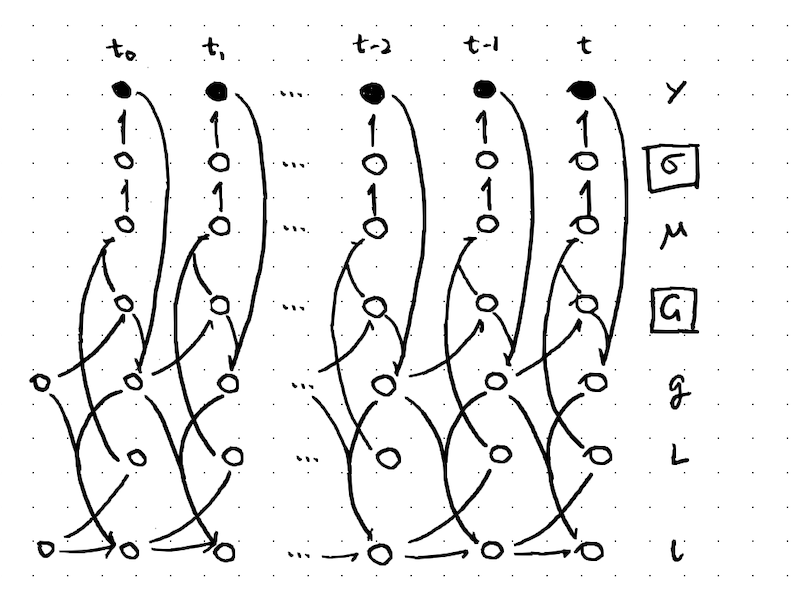 t₀ t₁ t-2 t-1 t
... y
... σ
... μ
... G
... g
... L
... l